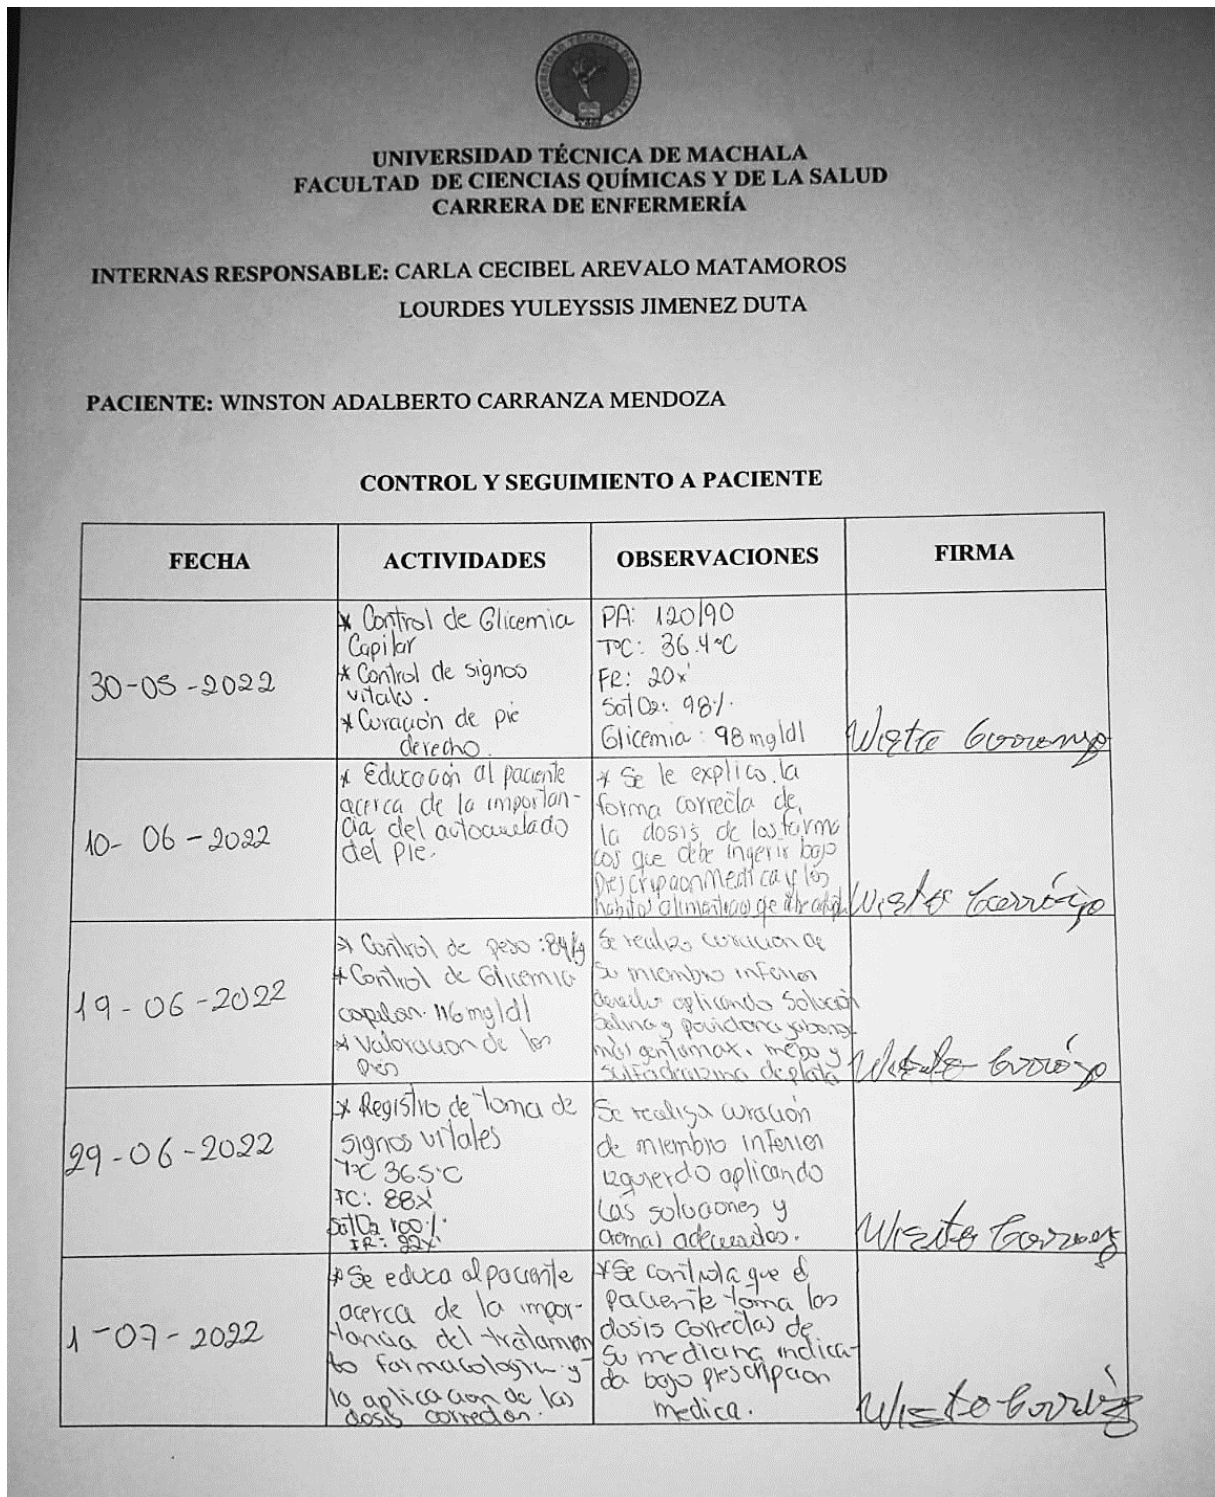 UNIVERSIDAD TÉCNICA DE MACHALA
FACULTAD DE CIENCIAS QUÍMICAS Y DE LA SALUD
CARRERA DE ENFERMERÍA
INTERNAS RESPONSABLE: CARLA CECIBEL AREVALO MATAMOROS
LOURDES YULEYSSIS JIMENEZ DUTA
PACIENTE: WINSTON ADALBERTO CARRANZA MENDOZA
CONTROL Y SEGUIMIENTO A PACIENTE
FECHA
ACTIVIDADES
OBSERVACIONES
FIRMA
30-05-2022
* Control de Glicemia
Capilar
* Control de signos
vitales.
* Curación de pie
derecho.
PA: 120/90
TºC: 36.4ºC
FR: 20x'
SatO2: 98%.
Glicemia: 98 mg/dl
10-06-2022
* Educación al paciente
acerca de la importan-
cia del autocuidado
del pie.
* Se le explico la
forma correcta de
la dosis de los farma
cos que debe ingerir bajo
Descripcion Medica y los
habitos alimenticios
19-06-2022
* Control de peso: 84kg
* Control de Glicemia
capilar. 116 mg/dl
* Valoracion de los
pies
Se realizo curacion de
su miembro inferior
derecho aplicando Solución
Salina y povidona
más gentamax, mebo y
de plata
29-06-2022
* Registro de toma de
signos vitales
TºC 36.5ºC
FC: 88x'
SatO2 100%.
FR: 22x'
Se realiza curación
de miembro inferior
izquierdo aplicando
las soluciones y
cremas adecuados.
1-07-2022
* Se educa al paciente
acerca de la impor-
tancia del tratamien
to farmacologico y
la aplicacion de las
dosis correctas.
* Se controla que el
paciente toma las
dosis correctas de
su medicina indica-
da bajo prescripcion
medica.